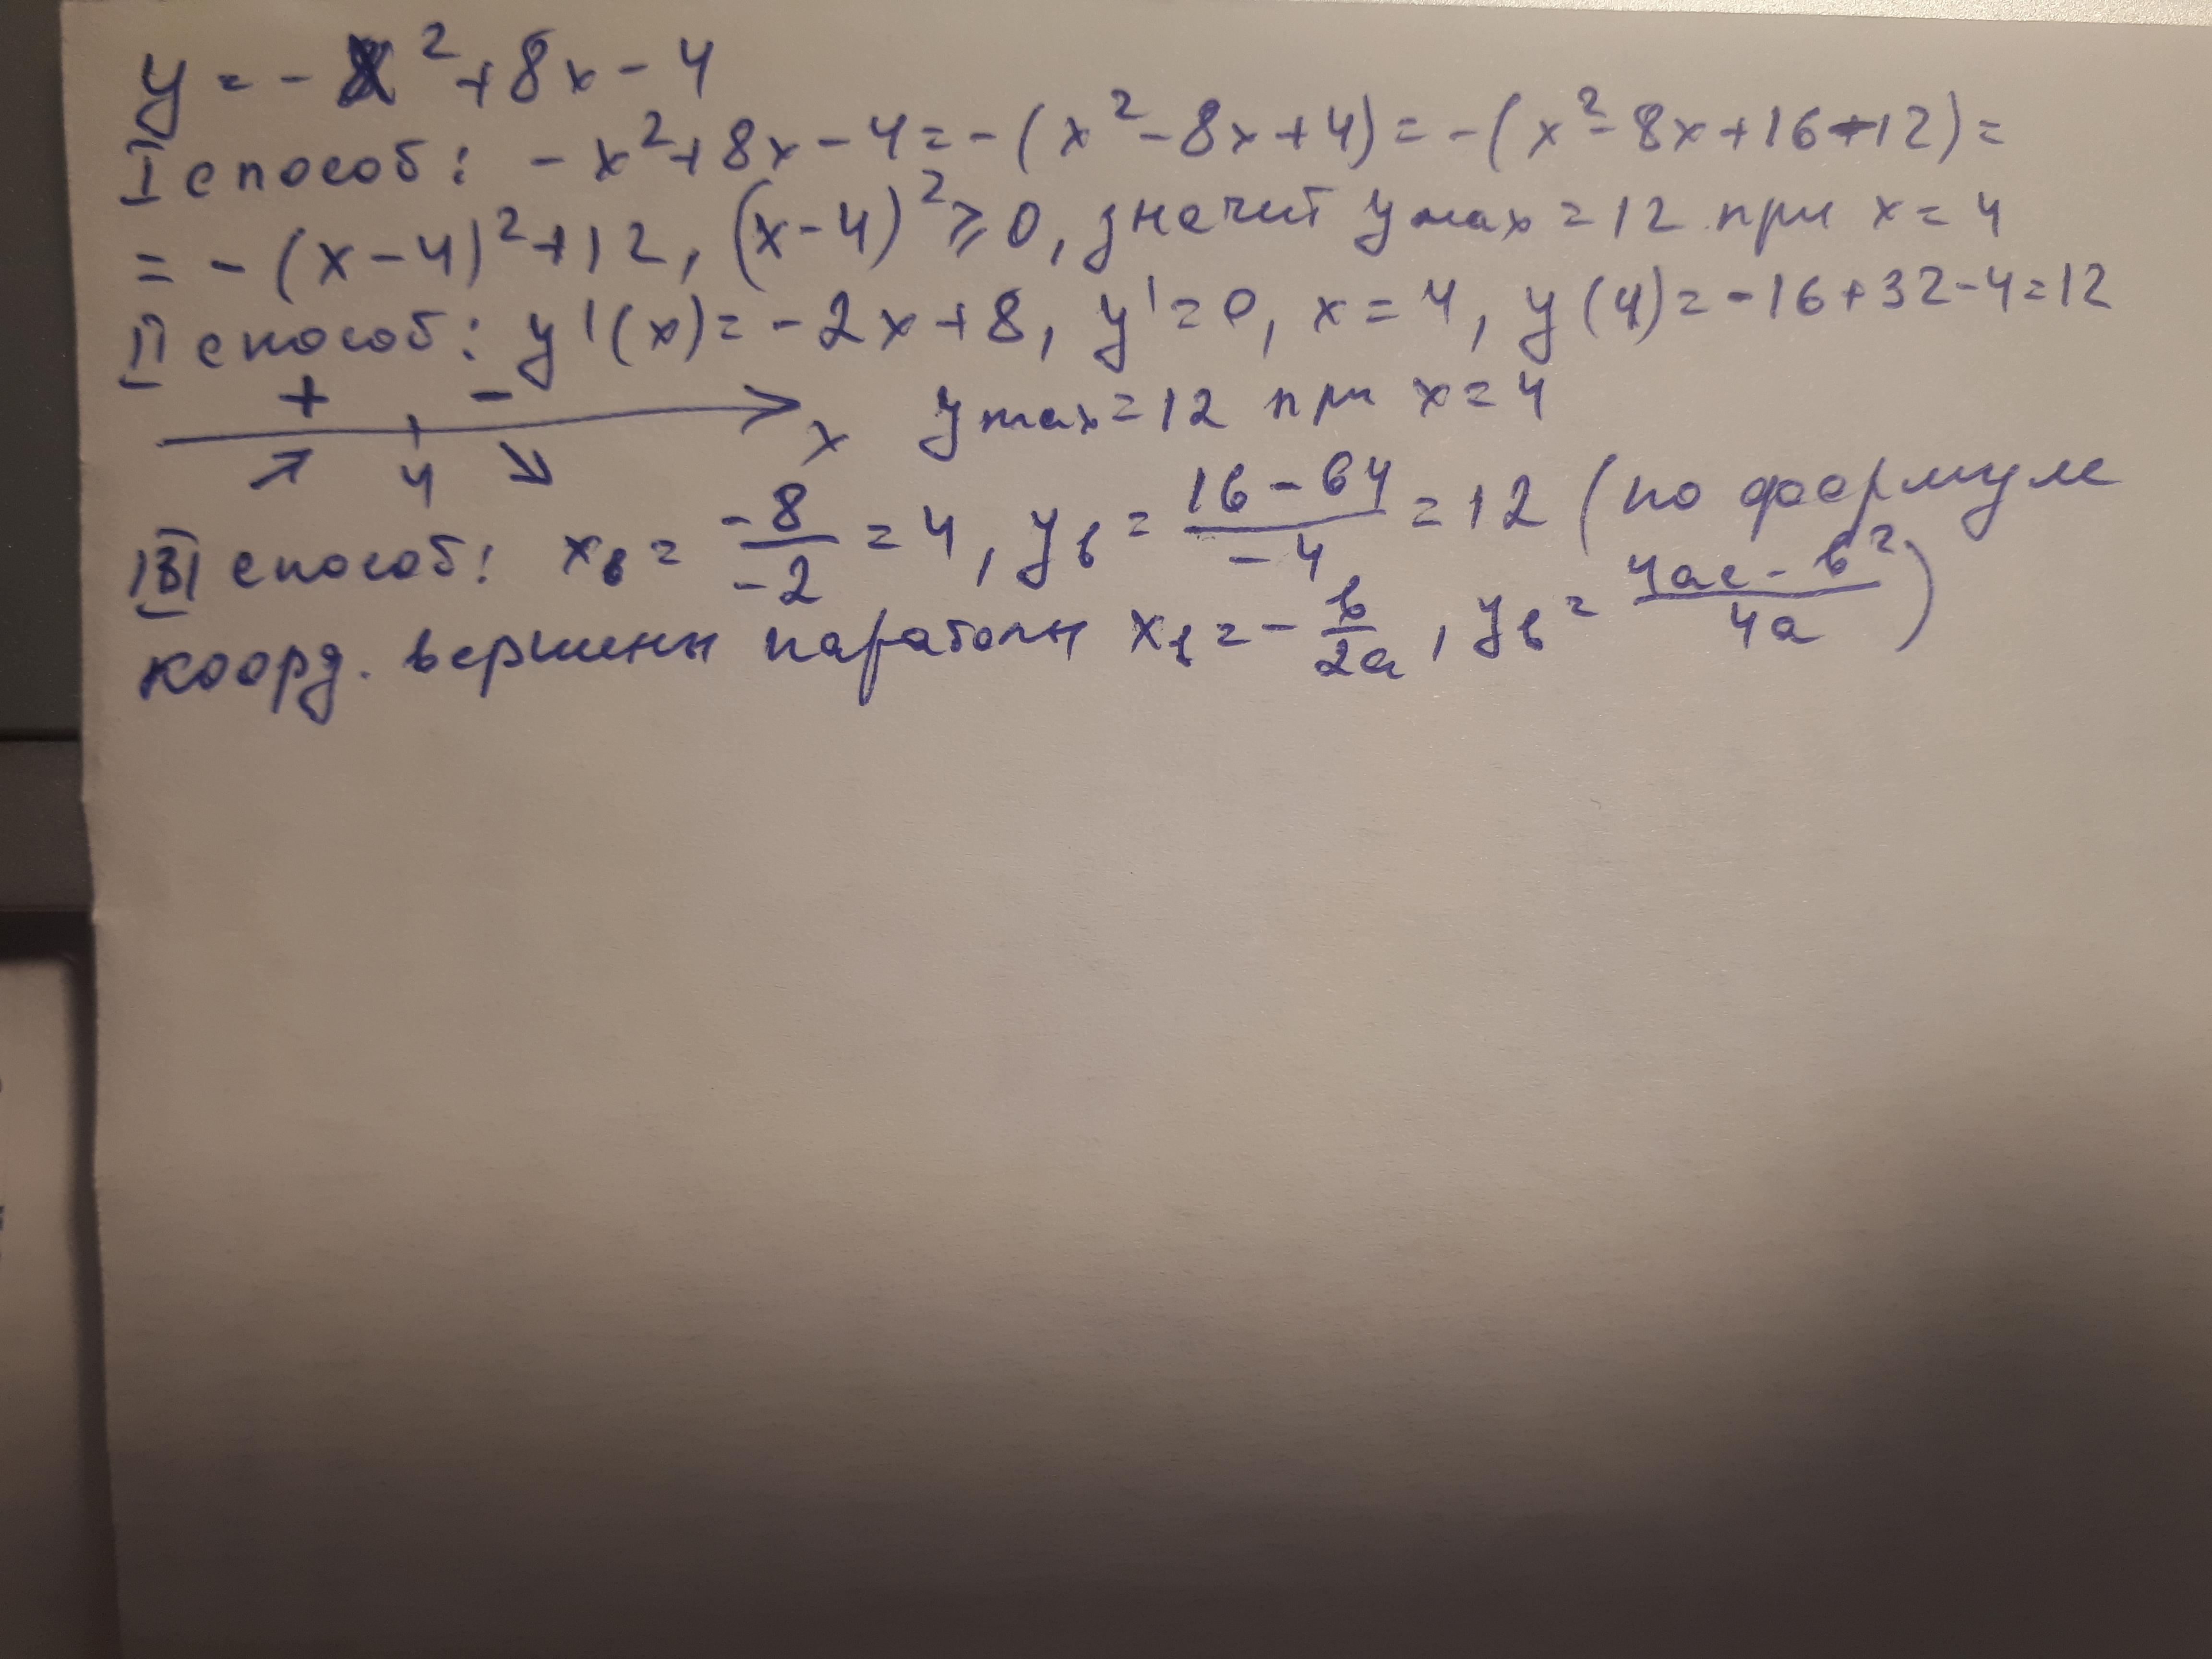 y = -x² + 8x - 4
I способ: -x² + 8x - 4 = -(x² - 8x + 4) = -(x² - 8x + 16 - 12) =
= -(x - 4)² + 12, (x - 4)² ⩾ 0, значит y max = 12 при x = 4
II способ: y'(x) = -2x + 8, y' = 0, x = 4, y(4) = -16 + 32 - 4 = 12
+ -
x y max = 12 при x = 4
↗ 4 ↘
III способ: xв = -8/-2 = 4, yв = (16 - 64)/-4 = 12 (по формуле
коорд. вершины параболы xв = -b/2a, yв = (4ac - b²)/4a)